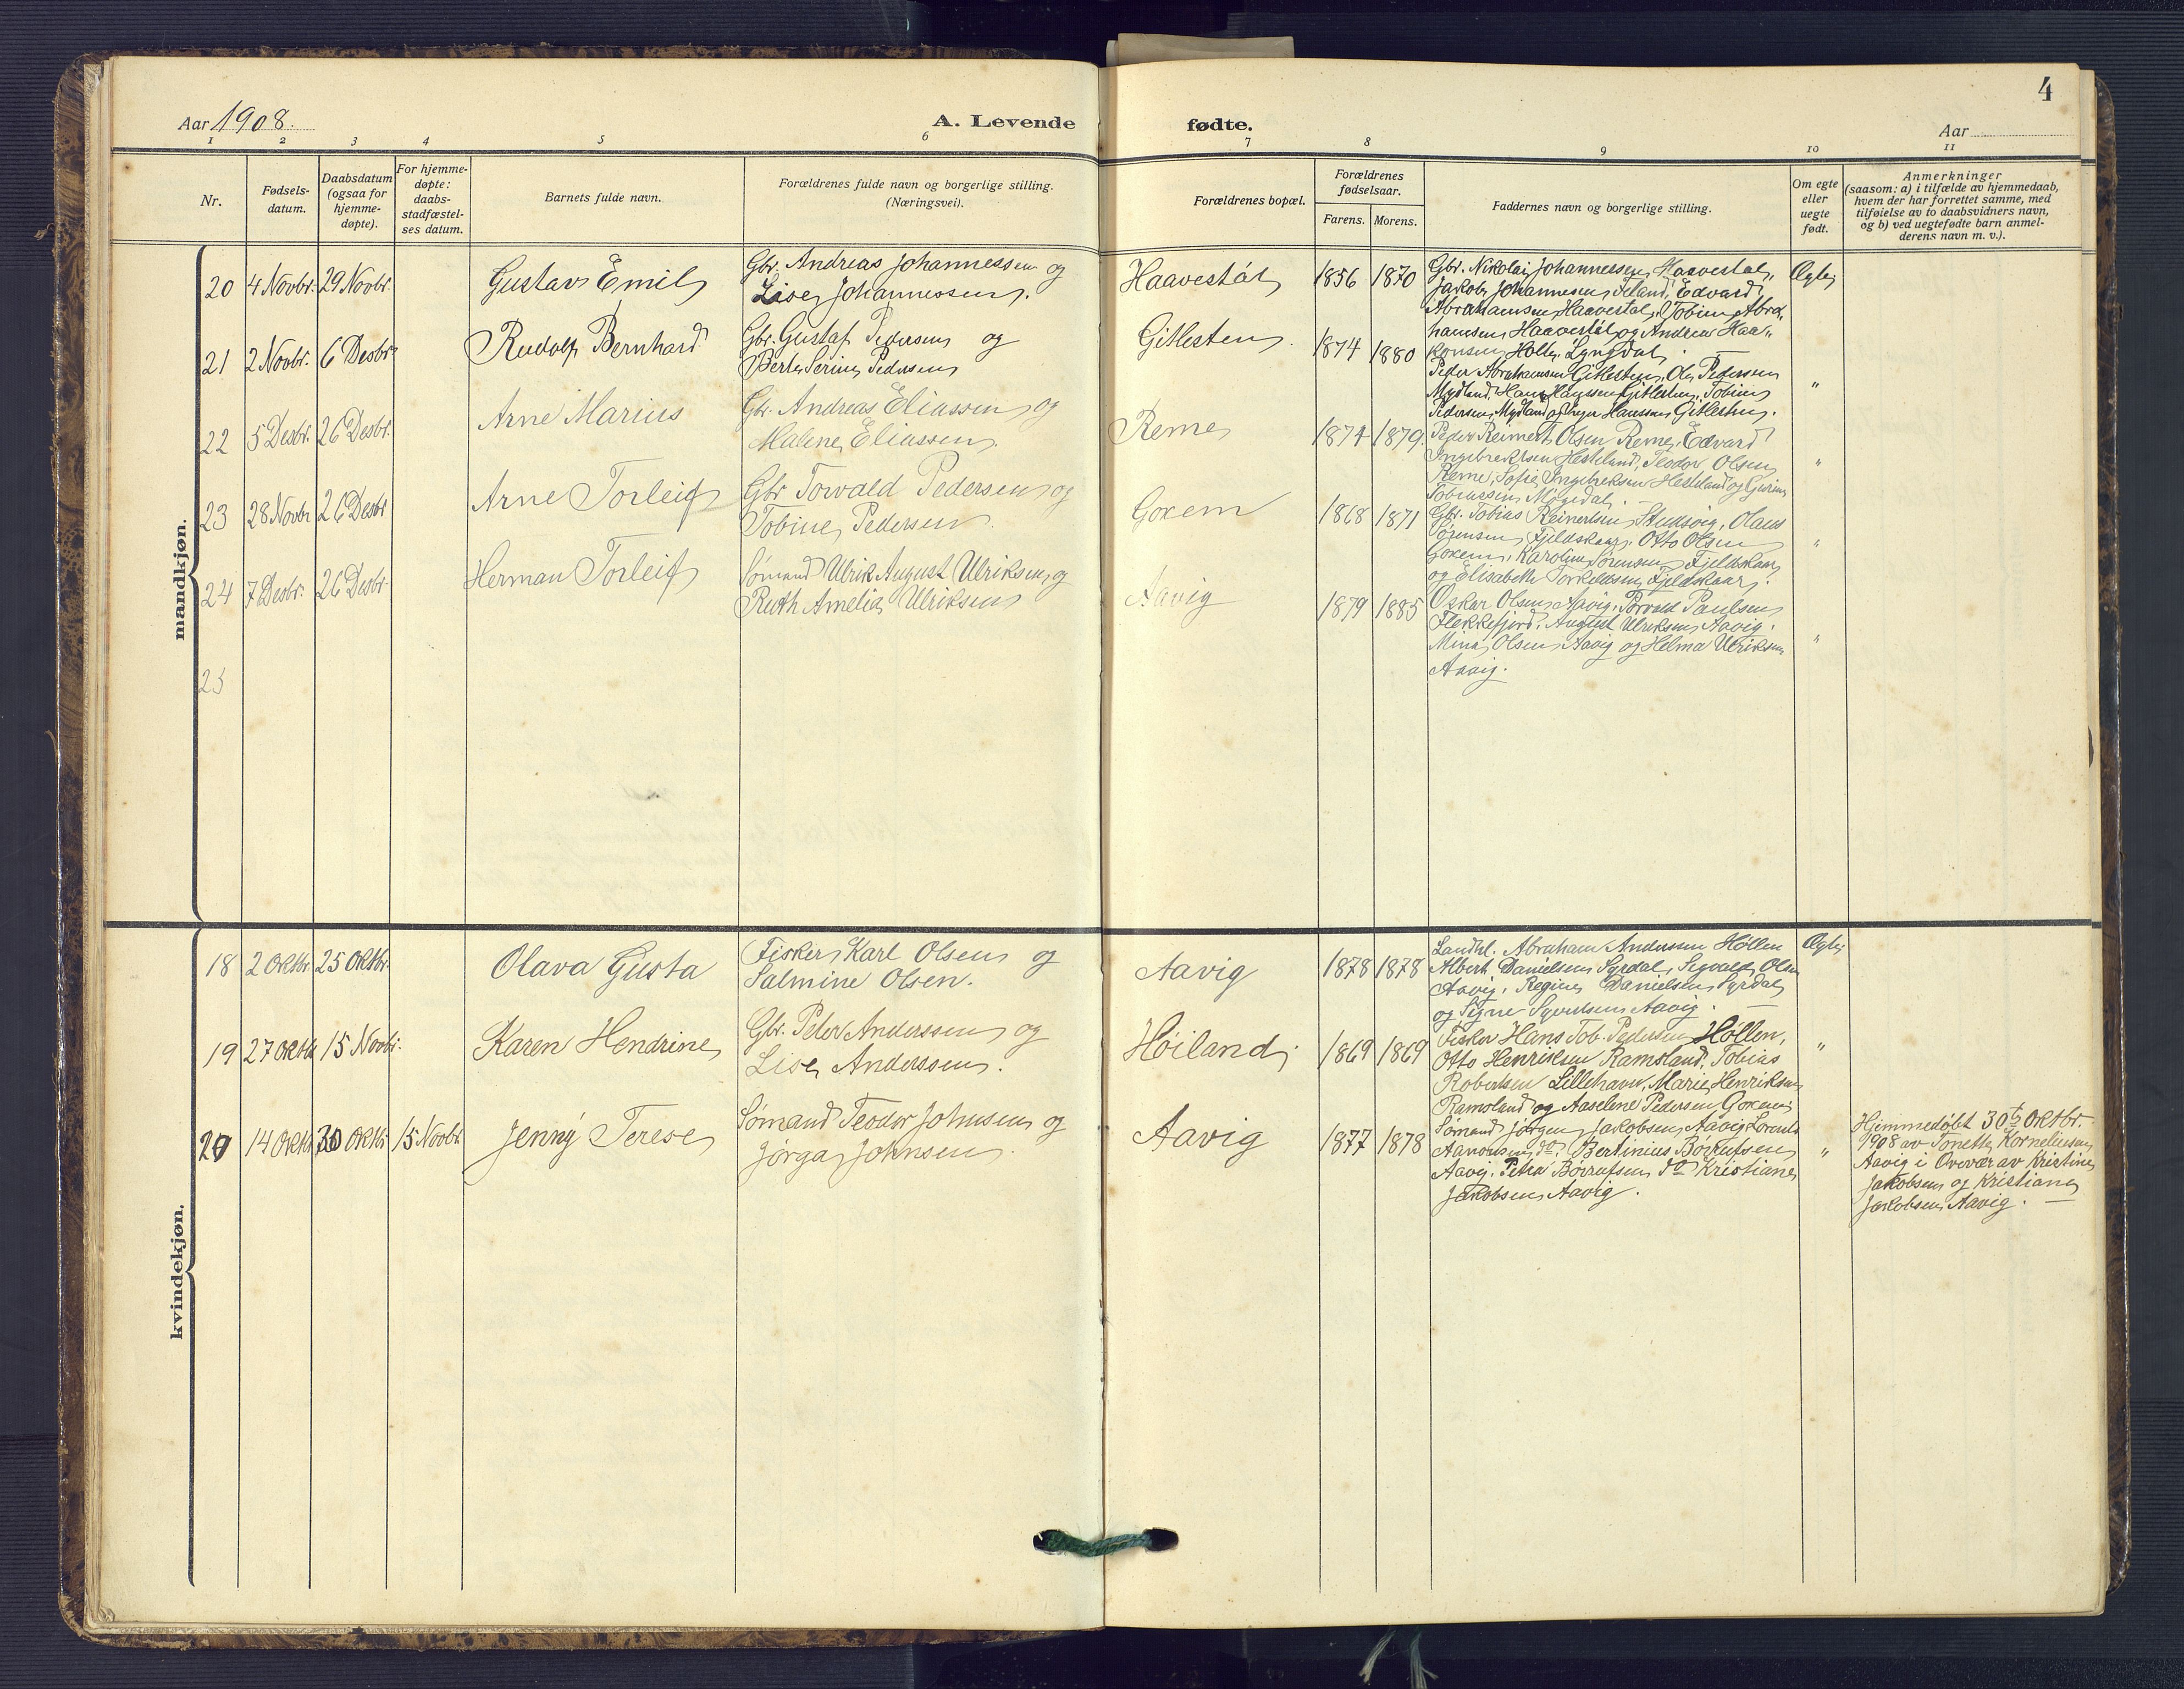 4
Aar 1908.
A. Levende fødte.
Aar
1 2 3 4 5 6 7 8 9 10 11
Nr.
Fødsels-
datum.
Daabsdatum
(ogsaa for
hjemme-
døpte).
For hjemme-
døpte:
daabs-
stadfæstel-
ses datum.
Barnets fulde navn.
Forældrenes fulde navn og borgerlige stilling.
(Næringsvei).
Forældrenes bopæl.
Forældrenes
fødselsaar.
Farens. Morens.
Faddernes navn og borgerlige stilling.
Om egte
eller
uegte
født.
Anmerkninger
(saasom: a) i tilfælde av hjemmedaab,
hvem der har forrettet samme, med
tilføielse av to daabsvidners navn,
og b) ved uegtefødte barn anmel-
derens navn m. v.).
mandkjøn.
20 4 Novbr. 29 Novbr. Gustav Emil
Gbr. Andreas Johannessen og
Lise Johannessen.
Haavestál 1856 1870
Gbr. Nikolai Johannessen, Haavestál,
Jakob Johannesen Feland, Edvard
Abrahamsen Haavestál, Tobine Abra-
hamsen Haavestál og Andrea Haa-
konsen Holte, Lyngdal.
Ægte
21 2 Novbr. 6 Desbr. Rudolf Bernhard
Gbr. Gustaf Pedersen og
Berte Serine Pedersen
Gitlesten. 1874 1880
Peder Abrahamsen Gitlesten, Ole Pedersen
Mydland, Hans Hanssen Gitlesten, Tobine
Pedersen Mydland og Inger Hanssen Gitlesten.
"
22 5 Desbr. 26 Desbr. Arne Marius
Gbr. Andreas Eliassen og
Malene Eliassen.
Reme 1874 1879
Peder Reimert Olsen Reme, Edvard
Ingebrektsen Hesteland, Teodor Olsen
Reme, Sofie Ingebreksen Hesteland og Gurine
Tobiassen Møgedal.
"
23 28 Novbr 26 Desbr Arne Torleif
Gbr Torvald Pedersen og
Tobine Pedersen.
Goxem 1868 1871
Gbr. Tobias Reinertsen, Studsvig, Olaus
Sørensen Fjeldskaar, Otto Olsen
Goxem, Karoline Sørensen Fjeldskaar
og Elisabeth Torkildsen Fjeldskaar.
"
24 7 Desbr. 26 Desbr. Herman Torleif
Sømand Ulrik August Ulriksen og
Ruth Amelia Ulriksen
Aavig 1879 1885
Oskar Olsen Aavig, Torvald Paulsen
Flekkefjord, August Ulriksen Aavig.
Mina Olsen Aavig og Helma Ulriksen
Aavig.
"
25
kvindekjøn.
18 2 Oktbr. 25 Oktbr. Olava Gusta
Fisker Karl Olsen og
Salmine Olsen.
Aavig 1878 1878
Landhl. Abraham Anderssen Høllen
Albert Danielsen Syrdal, Segvald Olsen
Aavig, Regine Danielsen Syrdal
og Signe Aavig.
Ægte
19 27 Oktbr 15 Novbr. Karen Hendrine
Gbr. Peder Anderssen og
Lise Anderssen.
Høiland 1869 1869
Fisker Hans Tob. Pedersen Høllen,
Otto Henriksen Ramsland, Tobias
Robertsen Lillehavn, Marie Henriksen
Ramsland og Aaselene Pedersen Goxem
"
20 14 Oktbr 30 Oktbr 15 Novbr. Jenny Terese
Sømand Teodor Johnsen og
Jørga Johnsen.
Aavig 1877 1878
Sømand Jørgen Jakobsen, Aavig,
Aanonsen do. Bertinius Børrufsen
Aavig. Petra Børrufsen do Kristiane
Jakobsen Aavig.
"
Hjemmedøbt 30te Oktbr.
1908 av Tonette Korneliusen,
Aavig i Overvær av Kristine
Jakobsen og Kristiane
Jakobsen Aavig.